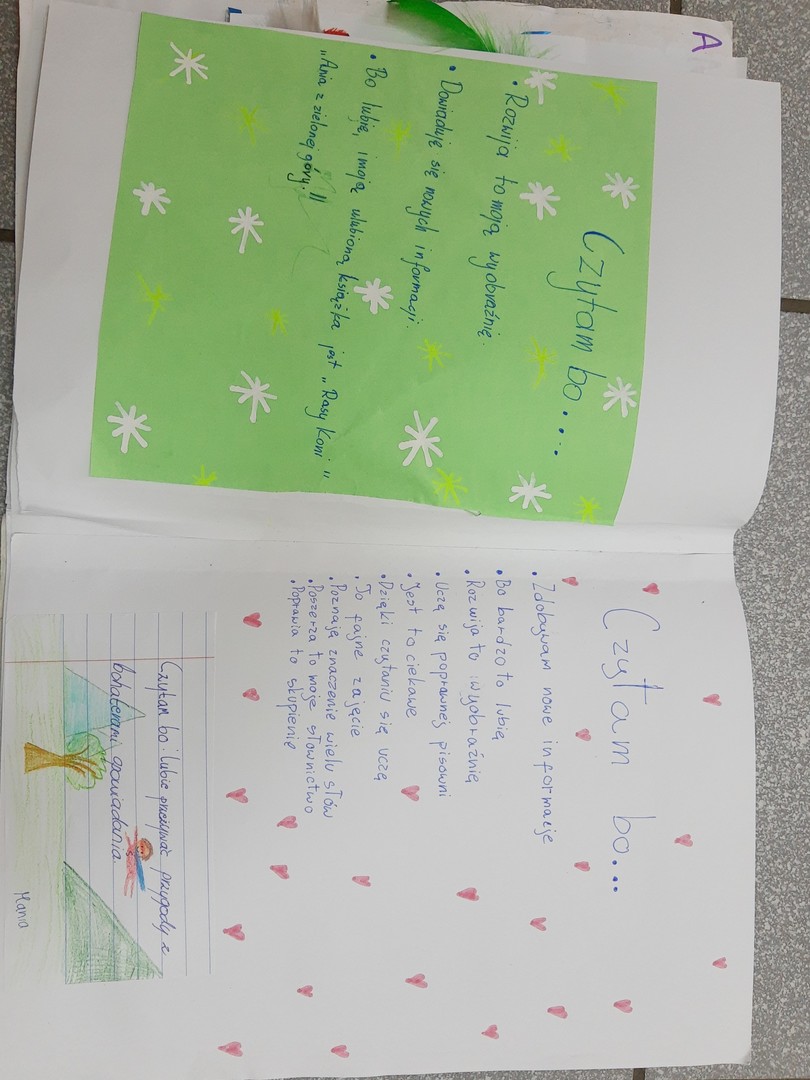 A
Czytam bo....
• Rozwija to moją wyobraźnię.
• Dowiaduję się nowych informacji.
• Bo lubię, i moją ulubioną książka jest „Rasy Koni"
„Ania z zielonej góry."
Czytam bo...
• Zdobywam nowe informacje
• Bo bardzo to lubię
• Rozwija to wyobraźnię
• Uczę się poprawnej pisowni
• Jest to ciekawe
• Dzięki czytaniu się uczę
• To fajne zajęcie
• Poznaję znaczenie wielu słów
• Poszerza to moje słownictwo
• Poprawia to skupienie
Czytam bo: lubię przeżywać przygody z
bohaterami opowiadania.
Mania